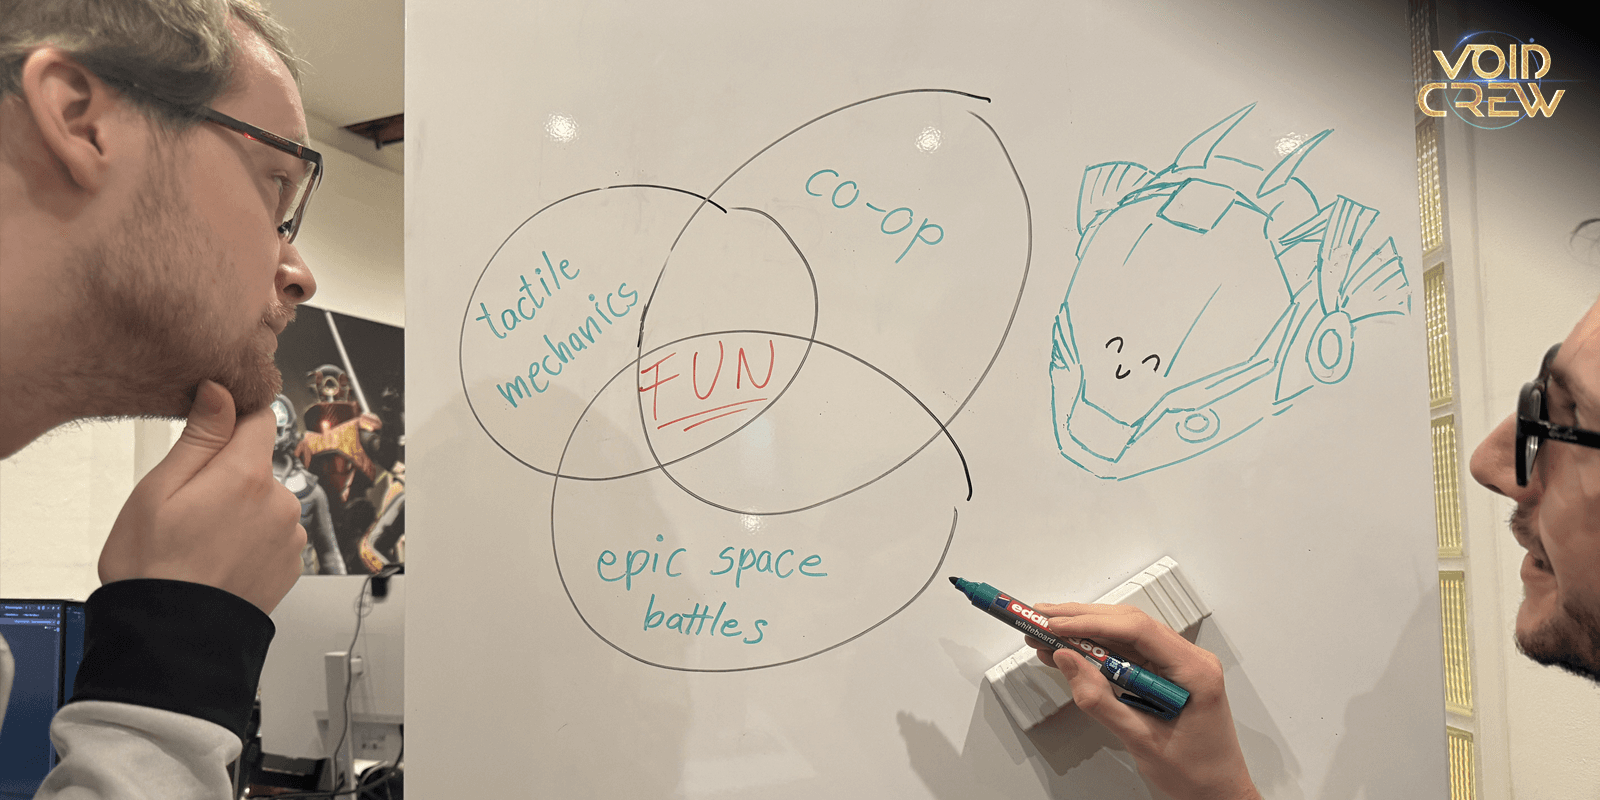 VOID
CREW
co-op
tactile
mechanics
FUN
epic space
battles
whiteboard